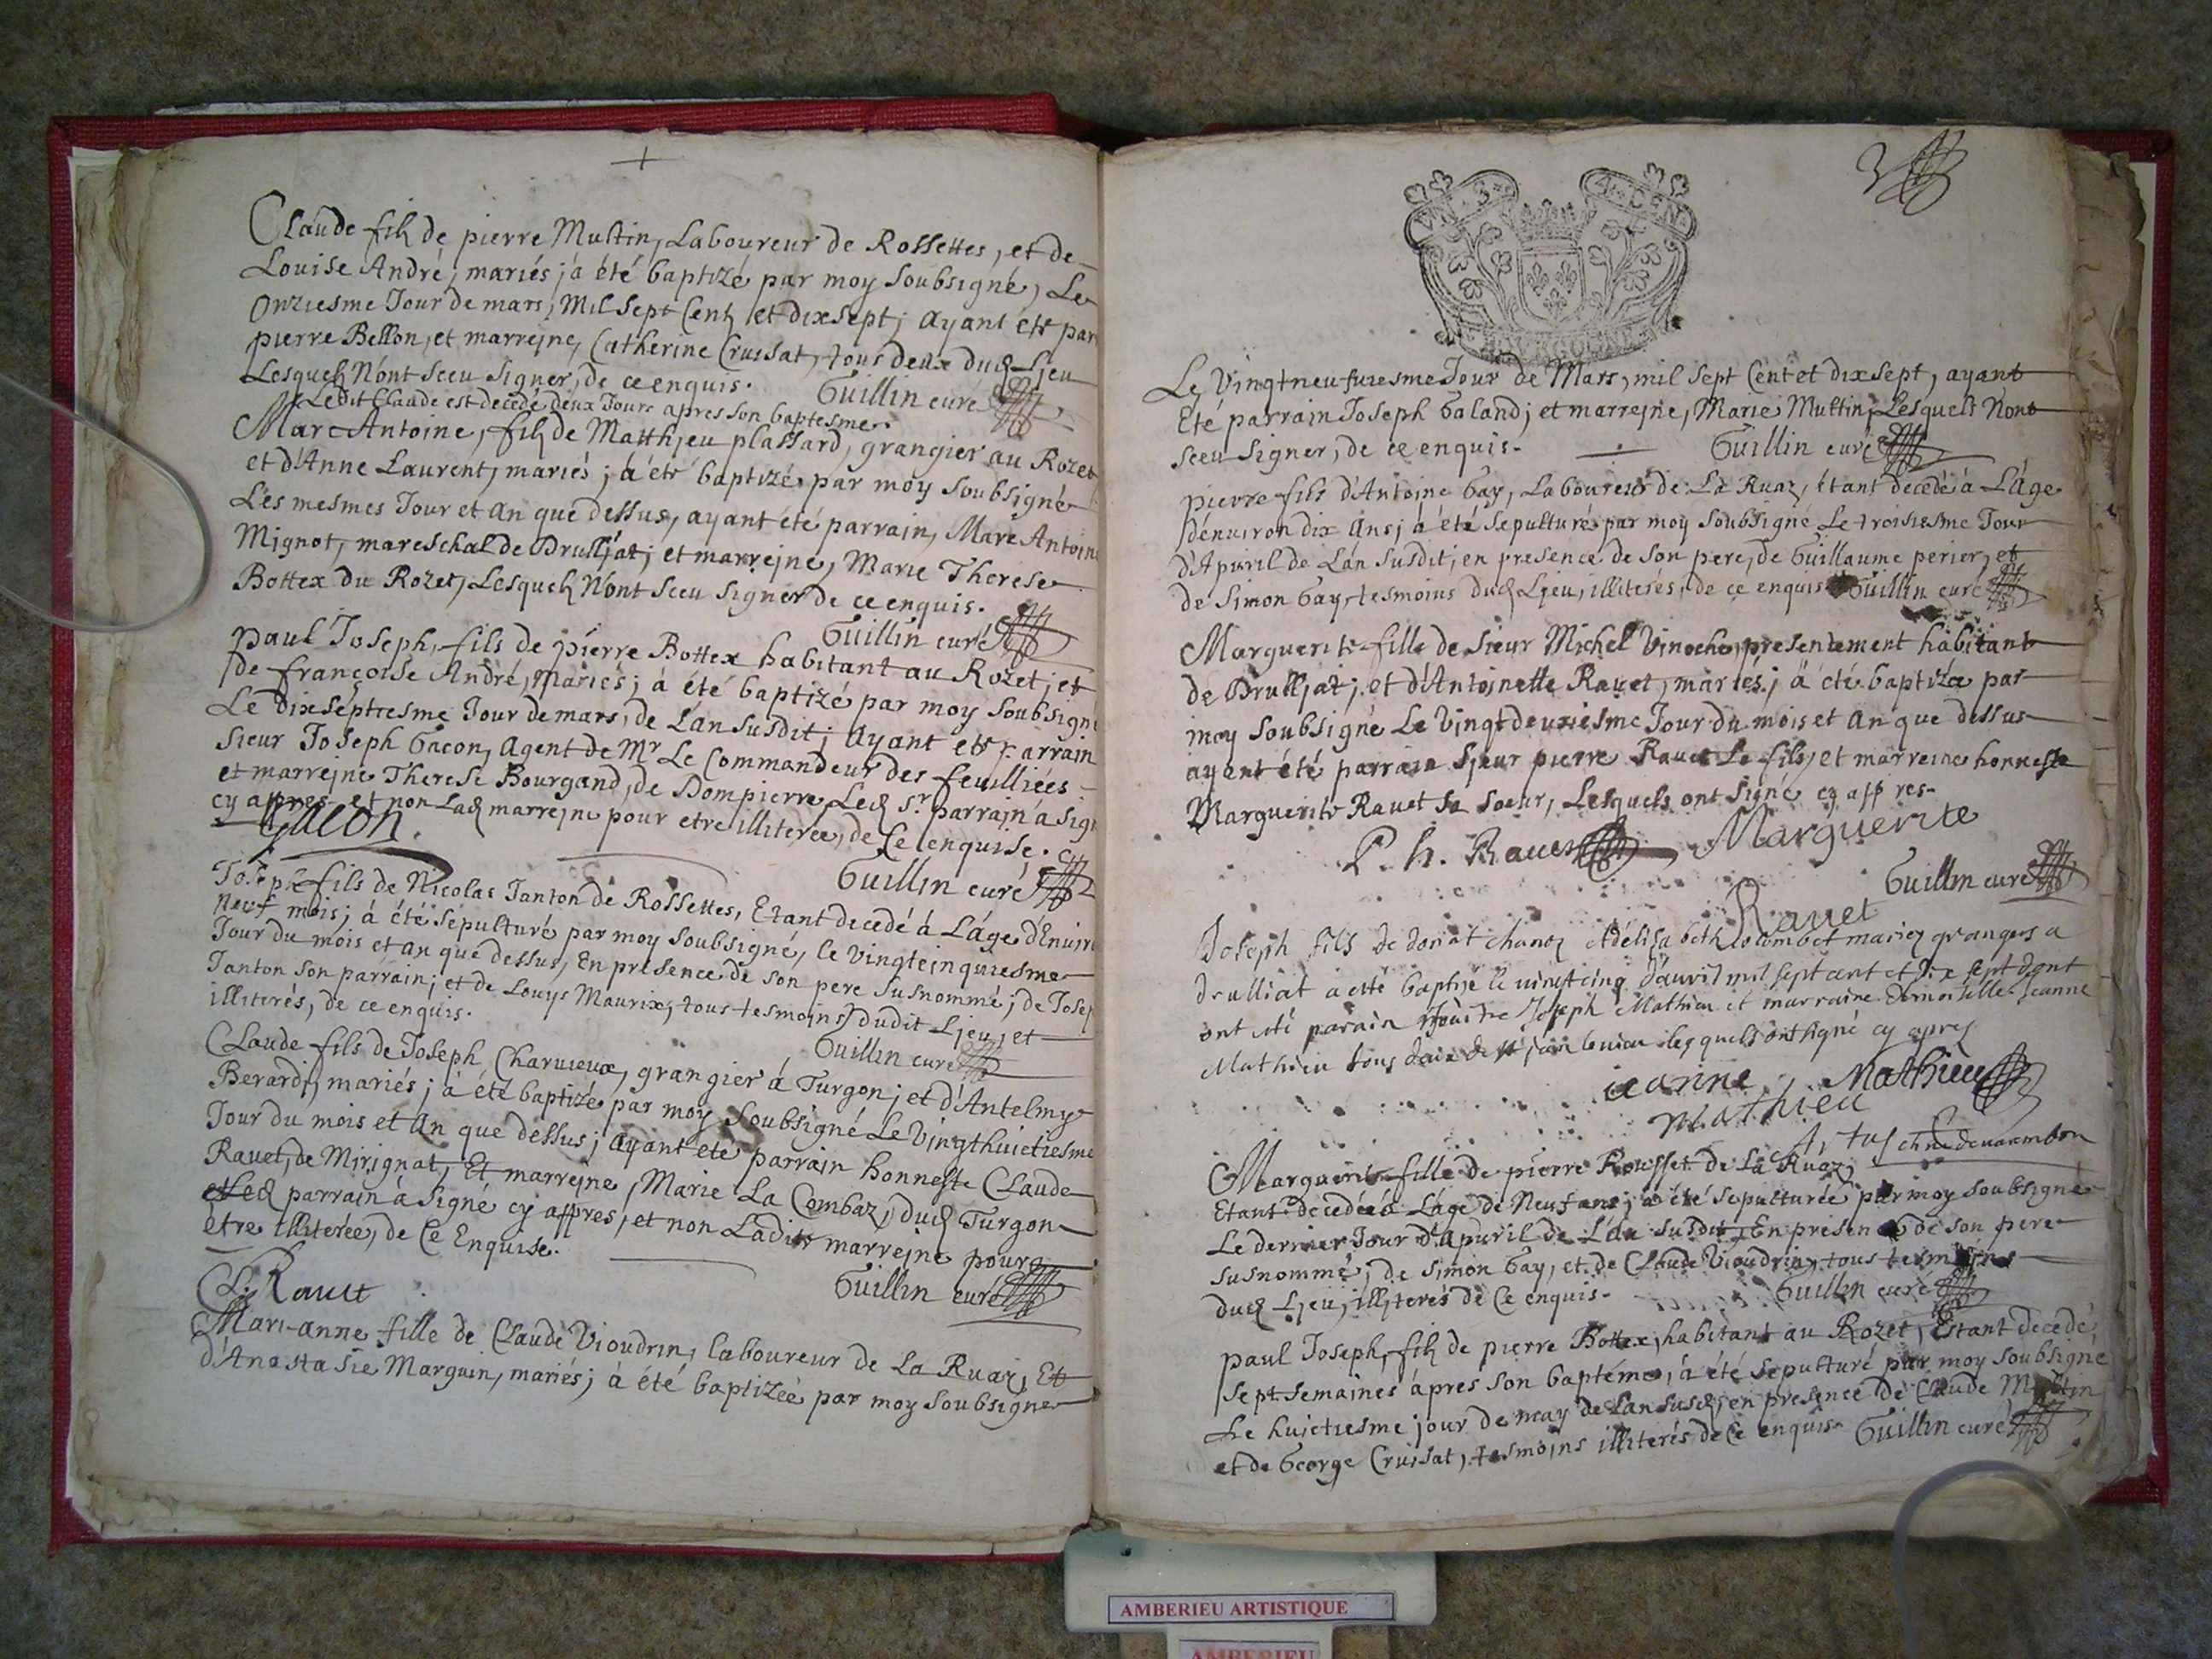 Claude fils de pierre Multin, Laboureur de Rossettes, et de
Louise André, mariés; à été baptizé par moy soubsigné, Le
Onziesme Jour de mars, Mil sept Cent et dixsept; ayant été par
pierre Bellon, et marrejne, Catherine Crussat, tous deux dud Ljeu
Lesquels N'ont sceu signer, de ce enquis. Guillin curé
Ledit Claude est decedé deux Jours apres son baptesme.
Marc Antoine, fils de Matthjeu plassard, grangier au Rozet
et d'Anne Laurent, mariés; à été baptizé par moy soubsigné
Les mesmes Jour et an que dessus, ayant été parrain, Marc Antoine
Mignot, mareschal de Drulljat; et marrejne, Marie Therese
Bottex du Rozet, Lesquels N'ont sceu signer de ce enquis.
Guillin curé
paul Joseph, fils de pierre Bottex habitant au Rozet; et
de françoise André, mariés; à été baptizé par moy soubsigné
Le dixseptiesme Jour de mars, de L'an susdit; ayant été parrain
sieur Joseph Gacon, agent de Mr Le Commandeur des feuilliées
et marrejne Therese Bourgand, de Dompierre, Led sr parrain à sig
cy appres et non Lad marrejne pour etre illiterée, de Ce enquise.
Gacon.
Guillin curé
Joseph fils de Nicolas Janton de Rossettes, Etant decedé à L'âge d'Enuiro
neuf mois; à été sepulturé par moy soubsigné, le vingtcinquiesme
Jour du mois et an que dessus, En presence de son pere susnommé; de Josep
Janton son parrain; et de Louys Maurix, tous tesmoins dudit Ljeu, et
illiterés, de ce enquis.
Guillin curé
Claude fils de Joseph Charuieux, grangier à Turgon; et d'Antelmy
Berard, mariés; à été baptizé par moy soubsigné Le vingthuictiesme
Jour du mois et an que dessus; ayant été parrain honneste Claude
Rauet, de Mirignat, Et marrejne, Marie La Combaz, dud Turgon
et Led parrain à signé cy appres, et non Ladite marrejne pour
être illiterée, de Ce Enquise.
C. Rauet
Guillin curé
Mari-anne fille de Claude Vioudrin, laboureur de La Ruaz, Et
d'Anastasie Marguin, mariés; à été baptizée par moy soubsigné
Le Vingtneufuiesme Jour de Mars, mil sept Cent et dixsept, ayant
Eté parrain Joseph Galand; et marrejne, Marie Multin, Lesquels N'ont
sceu signer, de ce enquis. Guillin curé
pierre fils d'Antoine Gay, Laboureur de La Ruaz, étant decedé à L'âge
d'enuiron dix ans; à été sepulturé par moy soubsigné Le troisiesme Jour
d'Apuril de L'an susdit, en presence de son pere, de Guillaume perier, et
de Simon Gay, tesmoins dud Ljeu, illiterés, de ce enquis Guillin curé
Marguerite fille de sieur Michel Vinoche, presentement habitant
de Drulljat; et d'Antoinette Rauet, mariés; à été baptizée par
moy soubsigné Le vingtdeuxiesme Jour du mois et an que dessus
ayant été parrain sjeur pierre Rauet Le fils, et marreine honneste
Marguerite Rauet sa soeur, Lesquels ont signé cy appres.
P. h. Rauet Marguerite
Guillin curé
Rauet
Joseph fils de donat chanoz et délisabeth colombet mariez grangers a
drulliat a eté baptisé le vintcinq d'auril mil sept cent et dix sept dont
ont eté parain Joseph Mathieu et marraine demoiselle jeanne
Mathieu tous deux de lesquels ont signé cy apres
ieanne Mathieu
mathieu
Artus
Marguerite fille de pierre Rousset de La Ruaz,
Etant decedée à L'âge de Neuf ans; à été sepulturée par moy soubsigné
Le dernier Jour d'apuril de L'an susdit, En presence de son pere
susnommé, de Simon Gay, et de Claude Vioudrin, tous tesmoins
dud Ljeu, illjterés de Ce enquis. Guillin curé
paul Joseph, fils de pierre Bottex, habitant au Rozet, Estant decedé
sept semaines apres son baptême, à été sepulturé par moy soubsigné
Le huictiesme jour de may de L'an susd, en presence de Claude Multin
et de George Crussat, tesmoins illiterés de Ce enquis. Guillin curé
AMBERIEU ARTISTIQUE
AMBERIEU